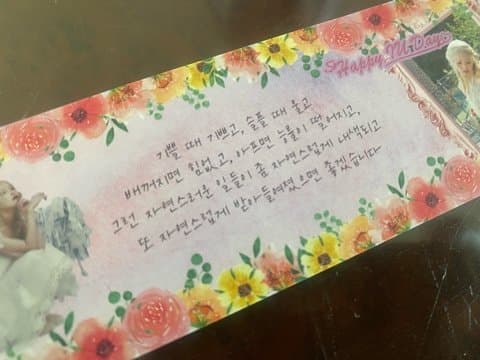 Happy IU Day
기쁠 때 기쁘고, 슬플 때 울고,
배꺼지면 힘없고, 아프면 능률이 떨어지고,
그런 자연스러운 일들이 좀 자연스럽게 내색되고
또 자연스럽게 받아들여졌으면 좋겠습니다